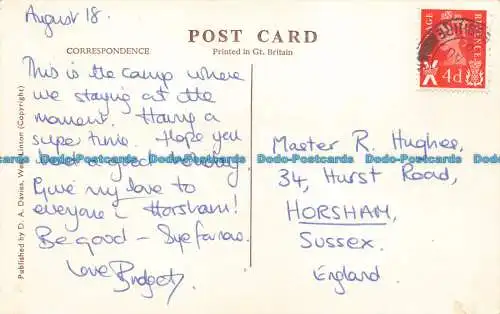 August 18.
POST CARD
CORRESPONDENCE
Printed in Gt. Britain
POSTAGE REVENUE
4d
This is the camp where
we staying at the
moment. Having a
super time. Hope you
had a good
Give my love to
everyone - Horsham!
Be good -
Love Bridget
Master R. Hughes,
34, Hurst Road,
HORSHAM,
SUSSEX.
England
Published by D. A. Davies, West Linton (Copyright)
Dodo-Postcards Dodo-Postcards Dodo-Postcards Dodo-Postcards Dodo-Postcards